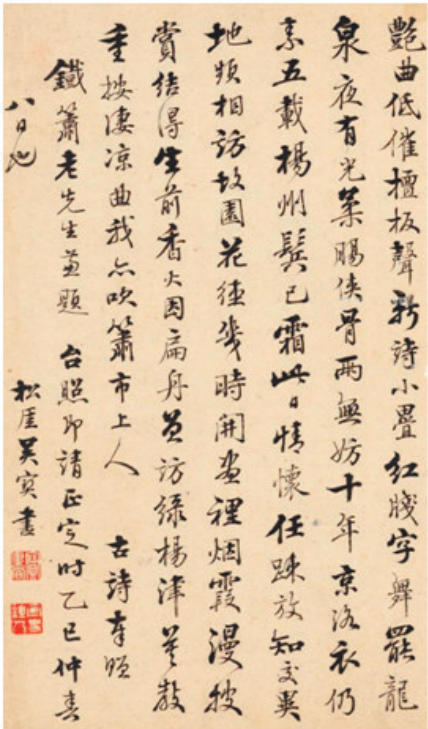 艷曲低催檀板聲新詩小疊紅牋字舞罷龍
泉夜有光柔腸俠骨兩無妨十年京洛衣仍
素五載楊州鬂已霜此日情懷任踈放知交異
地頻相訪故園花徑幾時開畫裡烟霞漫披
賞結得生前香火因扁舟訪綠楊津莫教
重按凄凉曲我亦吹簫市上人 古詩奉贈
鐵簫老先生並題 台照即請正定時乙巳仲春
八日也
松厓吳書